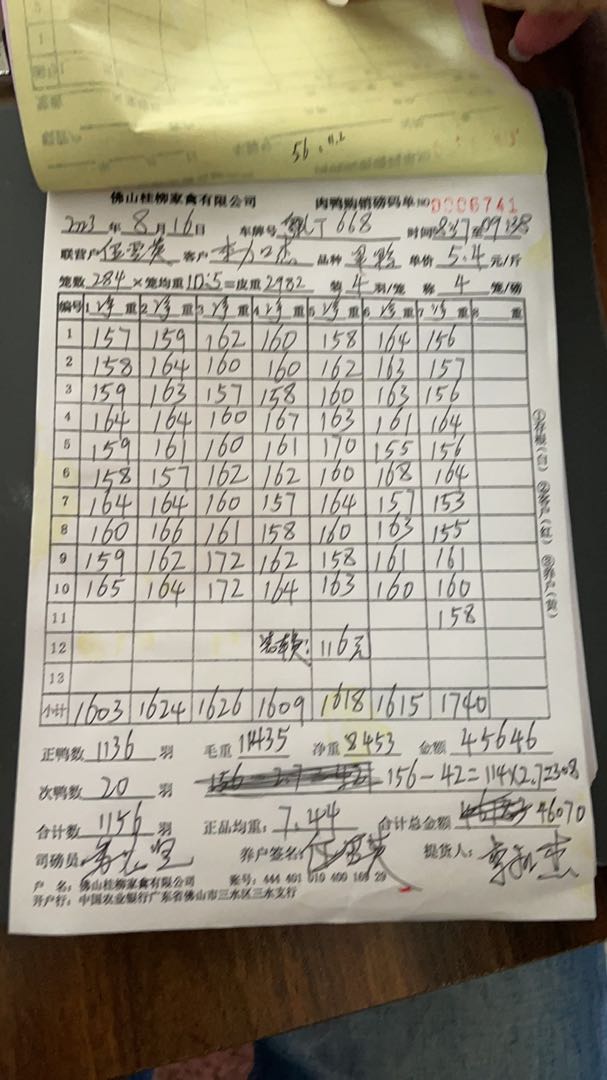 56.
佛山桂柳家禽有限公司 肉鸭购销磅码单 NO 0006741
2023年8月16日 车牌号 T668 时间 837至0938
联营户 伍雪英 客户 品种 单价5.4元/斤
笼数 284 × 笼均重 10.5 = 皮重 2982 装 4 羽/笼 称 4 笼/磅
编号 1 净 重 2 净 重 3 净 重 4 净 重 5 净 重 6 净 重 7 净 重 8 重
1 157 159 162 160 158 164 156
2 158 164 160 160 162 163 157
3 159 163 157 158 160 163 156
4 164 164 160 167 163 161 164
5 159 161 160 161 170 155 156
6 158 157 162 162 160 168 164
7 164 164 160 157 164 157 153
8 160 166 161 158 160 163 155
9 159 162 172 162 158 161 161
10 165 164 172 164 163 160 160
11 158
12 116元
13
小计 1603 1624 1626 1609 1618 1615 1740
正鸭数 1136 羽 毛重 11435 净重 8453 金额 45646
次鸭数 20 羽 156-2.7=421 156-42=114×2.7=308
合计数 1156 羽 正品均重: 7.44 合计总金额 46070
司磅员: 养户签名: 伍雪英 提货人:
户 名: 佛山桂柳家禽有限公司 账号: 444 401 010 400 169 29
开户行: 中国农业银行广东省佛山市三水区三水支行
①存根(白) ②客户(红) ③养户(黄)